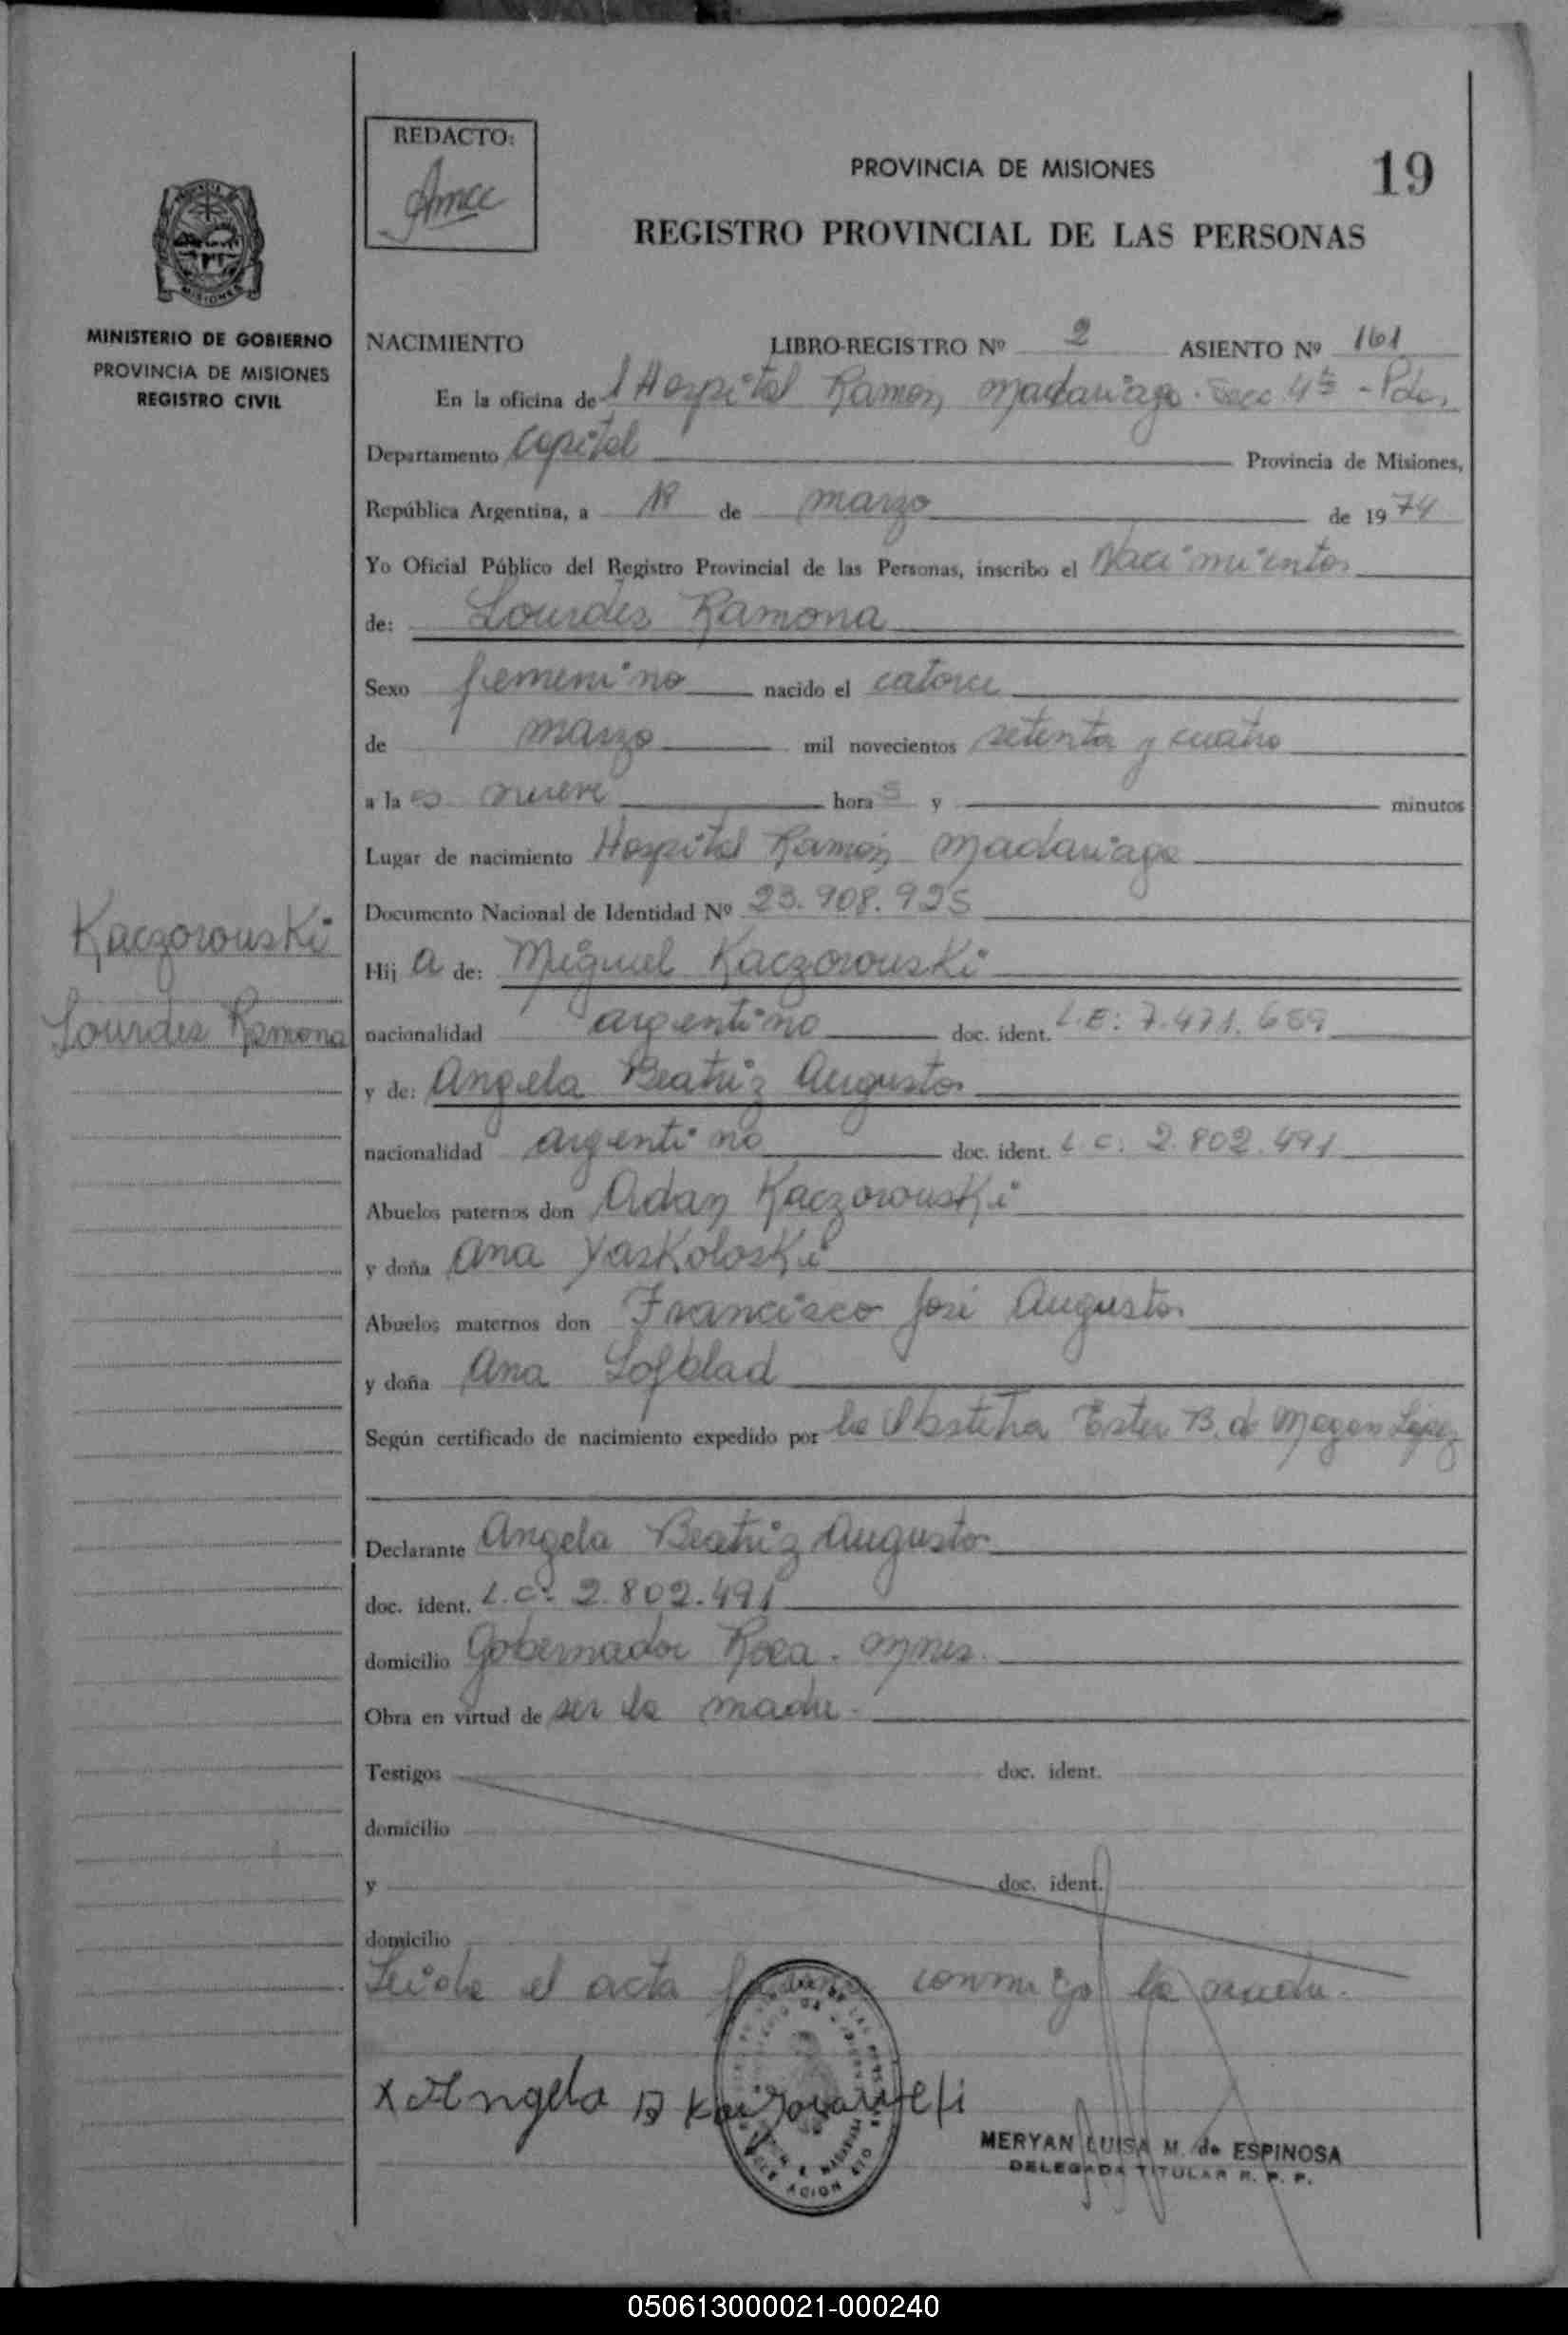 REDACTO:
PROVINCIA DE MISIONES
19
REGISTRO PROVINCIAL DE LAS PERSONAS
MISIONES
MINISTERIO DE GOBIERNO
PROVINCIA DE MISIONES
REGISTRO CIVIL
NACIMIENTO LIBRO-REGISTRO Nº 2 ASIENTO Nº 161
En la oficina de l Hospital Ramon Madariaga. Secc 4ta - Pdas
Departamento Capital Provincia de Misiones,
República Argentina, a 18 de marzo de 1974
Yo Oficial Público del Registro Provincial de las Personas, inscribo el Nacimiento
de: Lourdes Ramona
Sexo femenino nacido el catorce
de marzo mil novecientos setenta y cuatro
a la es nueve hora s y minutos
Lugar de nacimiento Hospital Ramón Madariaga
Documento Nacional de Identidad Nº 23.908.925
Kaczorouski
Lourdes Ramona
Hij a de: Miguel Kaczorouski
nacionalidad argentino doc. ident. L.E: 7.471.689
y de: Angela Beatriz Augusto
nacionalidad argentino doc. ident. L.C. 2.802.491
Abuelos paternos don Adan Kaczorouski
y doña Ana Yaskoloski
Abuelos maternos don Francisco José Augusto
y doña Ana Lofblad
Según certificado de nacimiento expedido por la Obstetra Ester B. de López
Declarante Angela Beatriz Augusto
doc. ident. L.C. 2.802.491
domicilio Gobernador Roca. Mnes.
Obra en virtud de ser la madre.
Testigos doc. ident.
domicilio
y doc. ident.
domicilio
Leida el acta conmigo la madre.
x Angela B
MERYAN LUISA M. de ESPINOSA
DELEGADA TITULAR R. P. P.
050613000021-000240